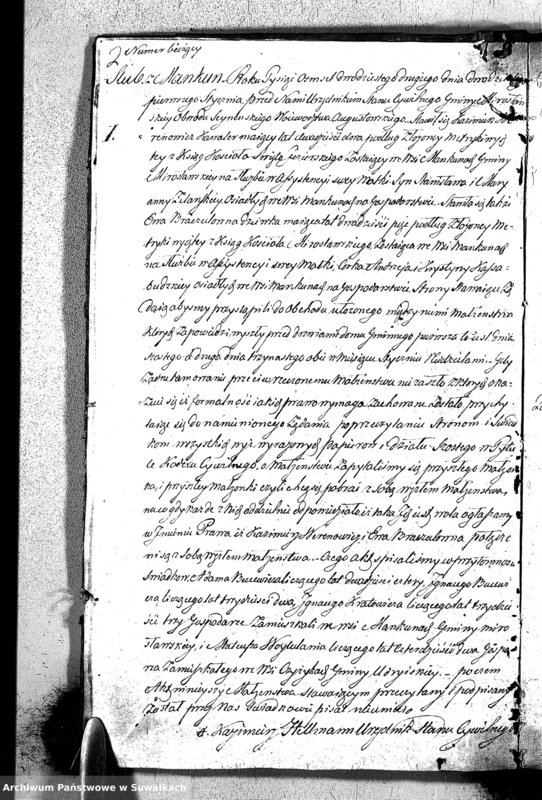 2 Numer bieżący
Ślub ze Mankun. Roku Tysiąc Osmset dwudziestego drugiego dnia dwudziestego
pierwszego Stycznia, przed Nami Urzędnikiem Stanu Cywilnego Gminy Mirosław
skiey Obwodu Seyneńskiego Woiewództwa Augustowskiego. Stawił się Kazimierz
1. maiący lat dwadzieścia dwa podług złożoney metryki wyię
tey z Księg Kościoła zostaiący we Wsi Mankunach Gminy
Mirosławskiey na Służbie w Assystencyi swey Matki, Syn Stanisława i Mary
anny osiadłych we Wsi Mankunach na Gospodarstwie. Stawiła się także
Ewa Panienka maiąca lat dwadzieścia pięć podług złożoney Me
tryki wyiętey z Księg Kościoła Mirosławskiego, zostaiąca we Wsi Mankunach
na Służbie w Assystencyi swey Matki, Córka Andrzeia i Krystyny
osiadłych we Wsi Mankunach na Gospodarstwie. Strony Stawaiące żą
daią abyśmy przystąpili do Obchodu ułożonego między nimi małżeństwa
którego Zapowiedzi wyszły przed drzwiami domu Gminnego pierwsza to iest dnia
szóstego a druga dnia trzynastego obie w Miesiącu Styczniu w Niedziele. Gdy
żadne tamowanie przeciw rzeczonemu Małżeństwu nie zaszło, z których oka
zuie się iż formalności iakich prawo wymaga zachowane zostały przychy
laiąc się do namienionego Żądania po przeczytaniu Stronom i Świad
kom wszystkich wyż wyrażonych papierów i działu Szóstego w Tytu
le Kodexu Cywilnego, o małżeństwie zapytaliśmy się przyszłego małżon
ka, i przyszłey małżonki czyli chcą się pobrać z sobą węzłem małżeństwa,
na co gdy każde z nich oddzielnie odpowiedziało iż taka iest ich wola ogłaszamy
w Imieniu Prawa iż Kazimierz i Ewa połącze
ni są z sobą węzłem małżeństwa. Czego akt spisaliśmy w przytomności
Świadków Adama liczącego lat dwadzieścia cztery, Ignacego
liczącego lat trzydzieści dwa, Ignacego liczącego lat trzydzie
ści trzy Gospodarze zamieszkali we wsi Mankunach Gminy Miro
sławskiey, i Mateusza Woytulania liczącego lat czterdzieści dwa Gospo
darza zamieszkałego we Wsi Gminy Udryiskiey. poczem
Akt ninieyszy Małżeństwa stawaiącym przeczytany i podpisany
został przez Nas Świadkowie pisać nieumieią
Kazimierz Hellmann Urzędnik Stanu Cywilnego
Archiwum Państwowe w Suwałkach